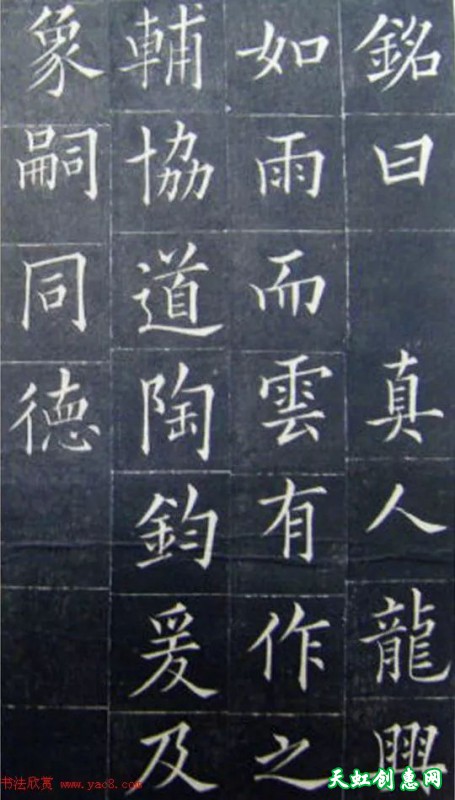 銘曰 真人龍興
如雨而雲有作之
輔協道陶鈞爰及
象嗣同德
书法欣赏
www.yac8.com
天虹创惠网